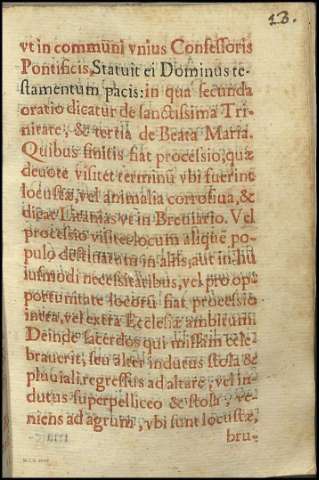 13.
vt in communi vnius Confessoris
Pontificis, Statuit ei Dominus te-
stamentum pacis: in qua secunda
oratio dicatur de sanctissima Tri-
nitate, & tertia de Beata Maria.
Quibus finitis fiat processio, quæ
deuote visitet terminũ vbi fuerint
locustæ, vel animalia corrosiua, &
dicat Litanias vt in Breuiario. Vel
processio visitet locum aliquẽ po-
pulo destinatum in aliis, aut in hu
iusmodi necessitatibus, vel pro op-
portunitate locorũ fiat processio
intra, vel extra Ecclesiæ ambitum.
Deinde sacerdos qui missam cele
brauerit, seu alter indutus stola &
pluuiali, regressus ad altare, vel in
dutus superpelliceo & stola, ve-
niens ad agrum, vbi sunt locustæ,
bru-